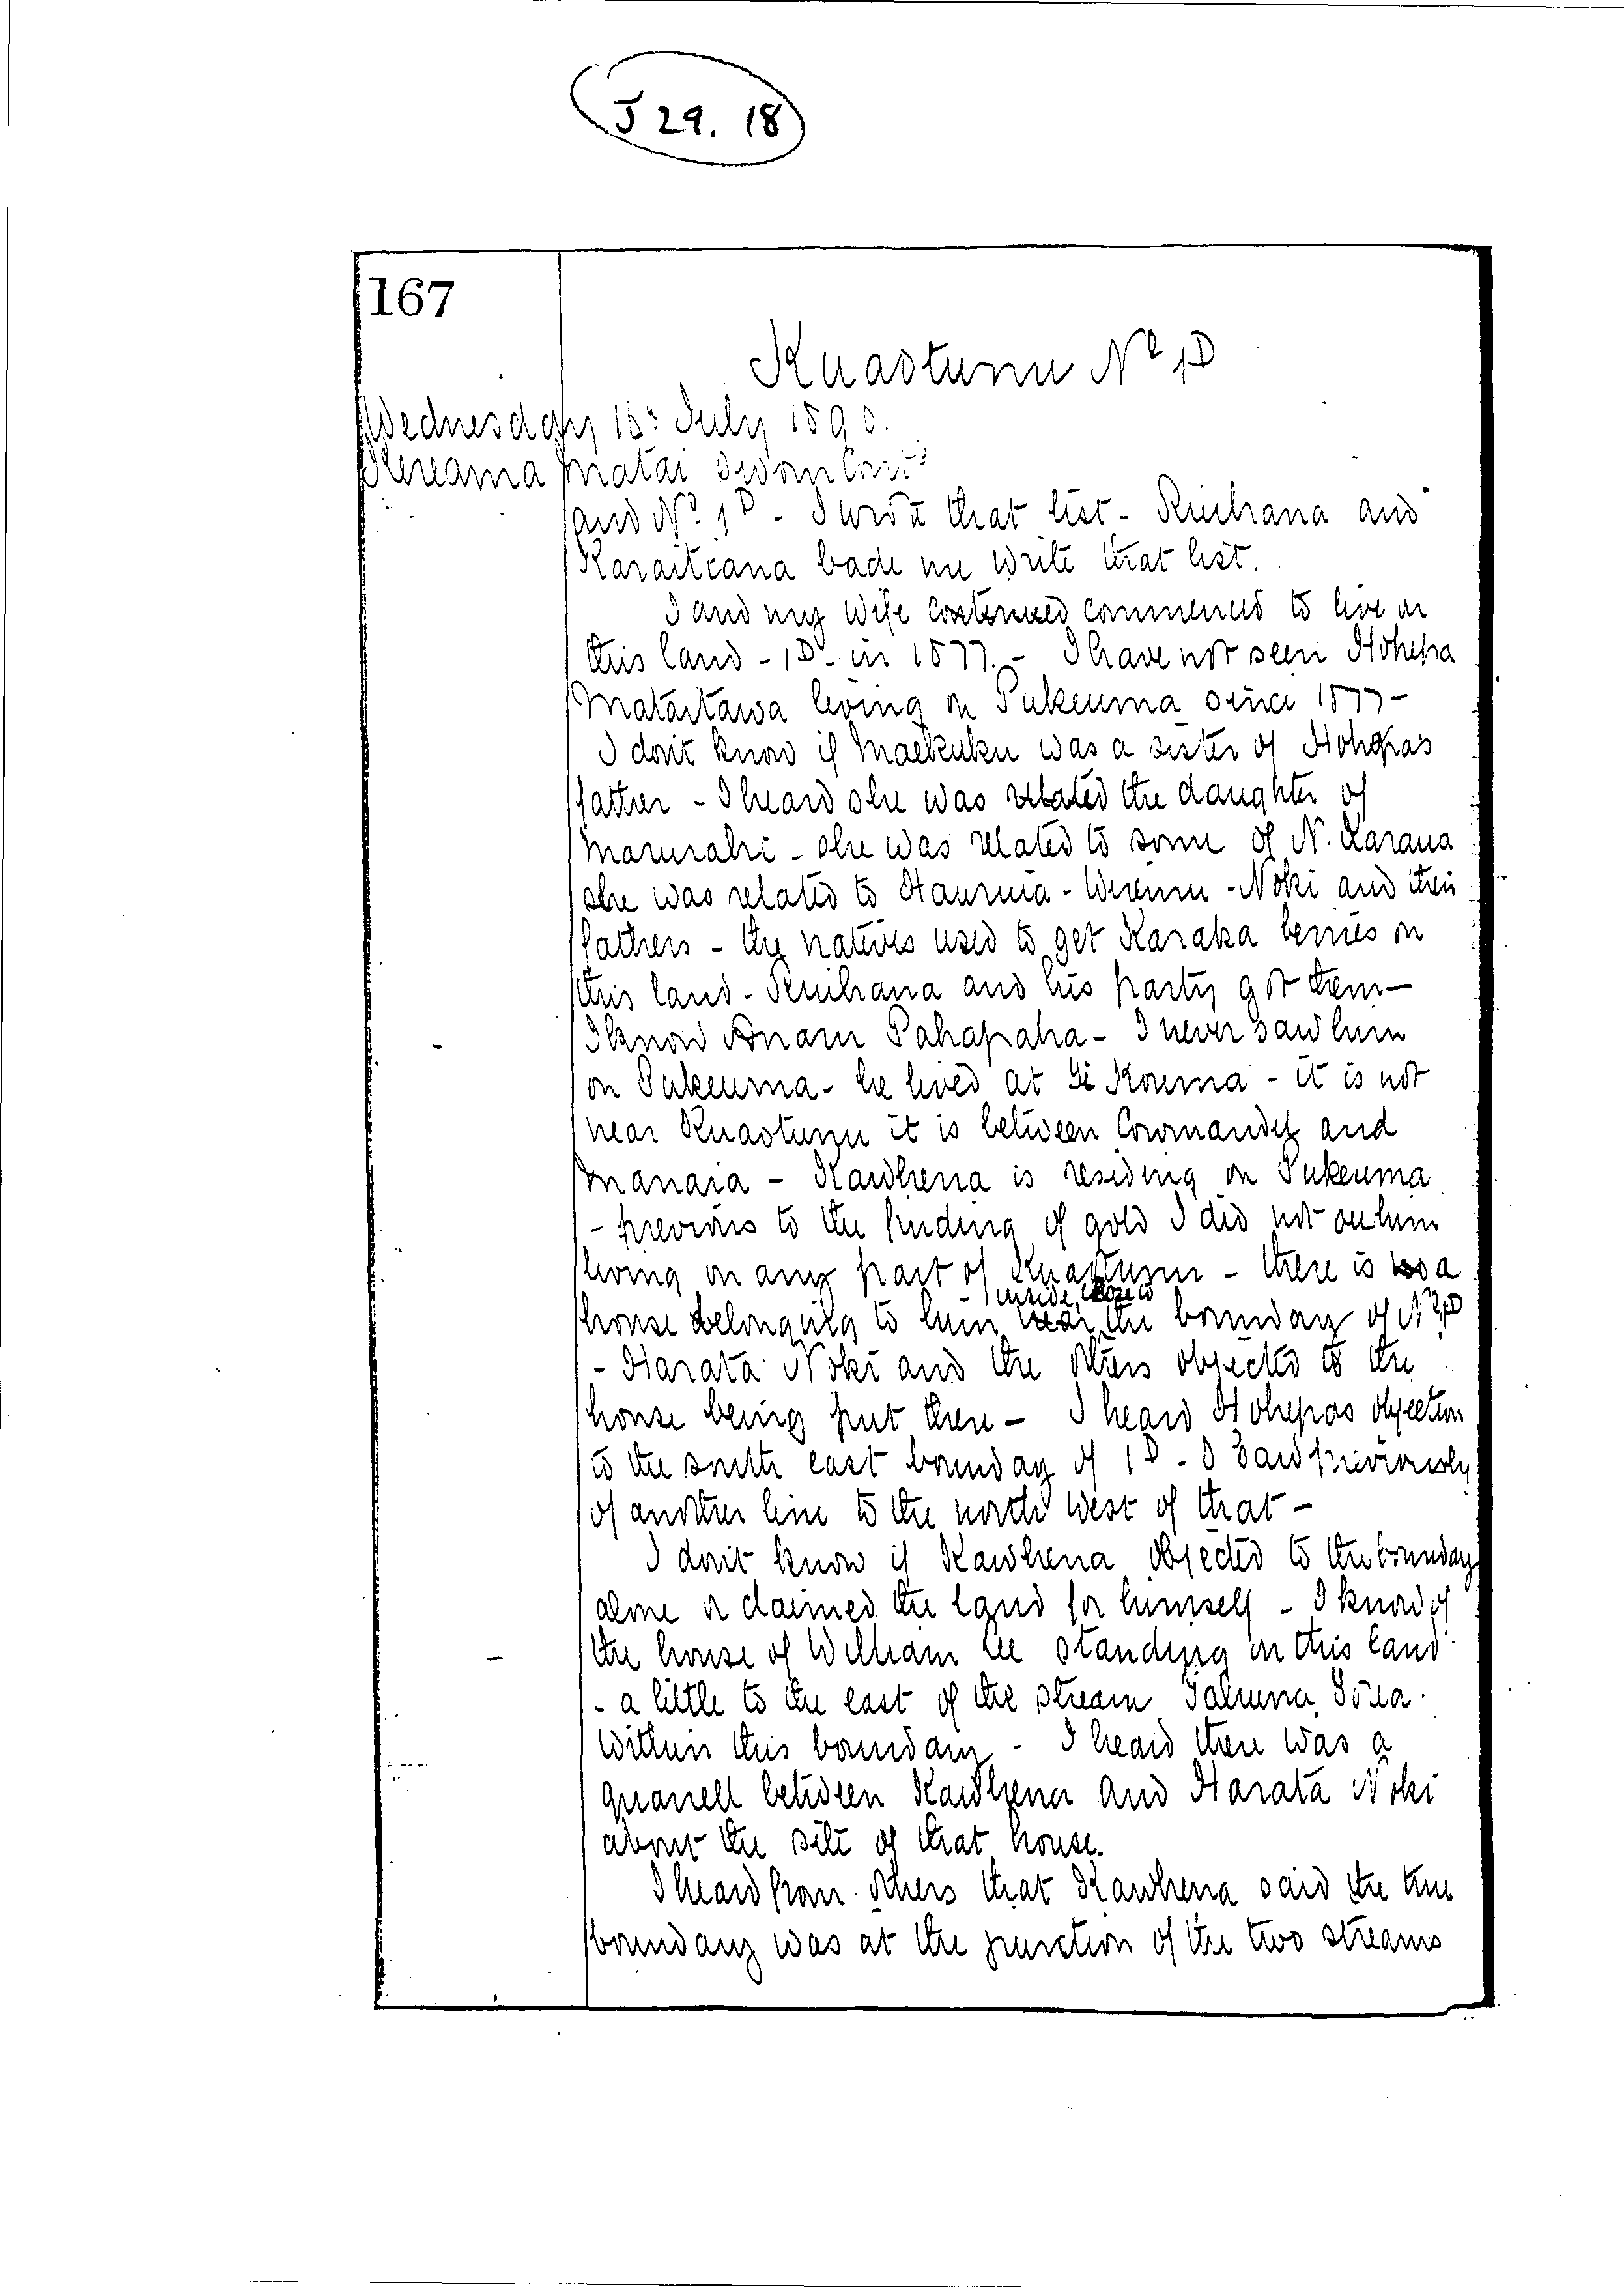 J 29. 18
167
Kuaotunu No 1D
Wednesday 16: July 1890.
Kereama Matai sworn
and No. 1D - I wrote that list - Ruihana and
Karaitiana bade me write that list.
I and my wife continued commenced to live on
this land - 1D - in 1877. - I have not seen Hohepa
Mataitawa living on Pukeuma since 1877 -
I don't know if Maekuku was a sister of Hohepas
father - I heard she was related the daughter of
Marurahi - she was related to some of N. Karaua
she was related to Hauruia - Wiremu - Noki and their
fathers - the natives used to get Karaka berries on
this land - Ruihana and his party got them -
I know Anaru Pahapaha - I never saw him
on Pukeuma - he lived at Te Kouma - it is not
near Kuaotunu it is between Coromandel and
Manaia - Kawhena is residing on Pukeuma
- previous to the finding of gold I did not see him
living on any part of Kuaotunu - there is a
inside close to
house belonging to him near the boundary of No 1D
- Harata Noki and the others objected to the
house being put there - I heard Hohepas objection
to the south east boundary of 1D - I saw previously
of another line to the north west of that -
I don't know if Kawhena objected to the boundary
alone or claimed the land for himself - I know of
the house of William Lee standing on this land
- a little to the east of the stream Tahuna Torea
within this boundary - I heard there was a
quarrell between Kawhena and Harata Noki
about the site of that house.
I heard from others that Kawhena said the true
boundary was at the junction of the two streams